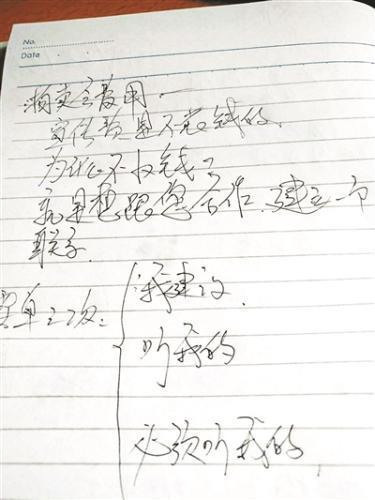 No.
Date
费用：
宣传费是不花钱的
为什么不收钱？
就是想跟您合作，建立一个
联系
单三次：
我建议
听我的
必须听我的